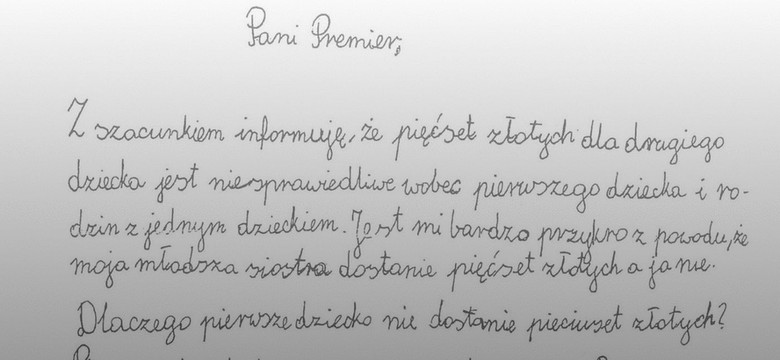 Pani Premier,
Z szacunkiem informuję, że pięćset złotych dla drugiego
dziecka jest niesprawiedliwe wobec pierwszego dziecka i ro-
dzin z jednym dzieckiem. Jest mi bardzo przykro z powodu, że
moja młodsza siostra dostanie pięćset złotych a ja nie.
Dlaczego pierwsze dziecko nie dostanie pieciuset złotych?